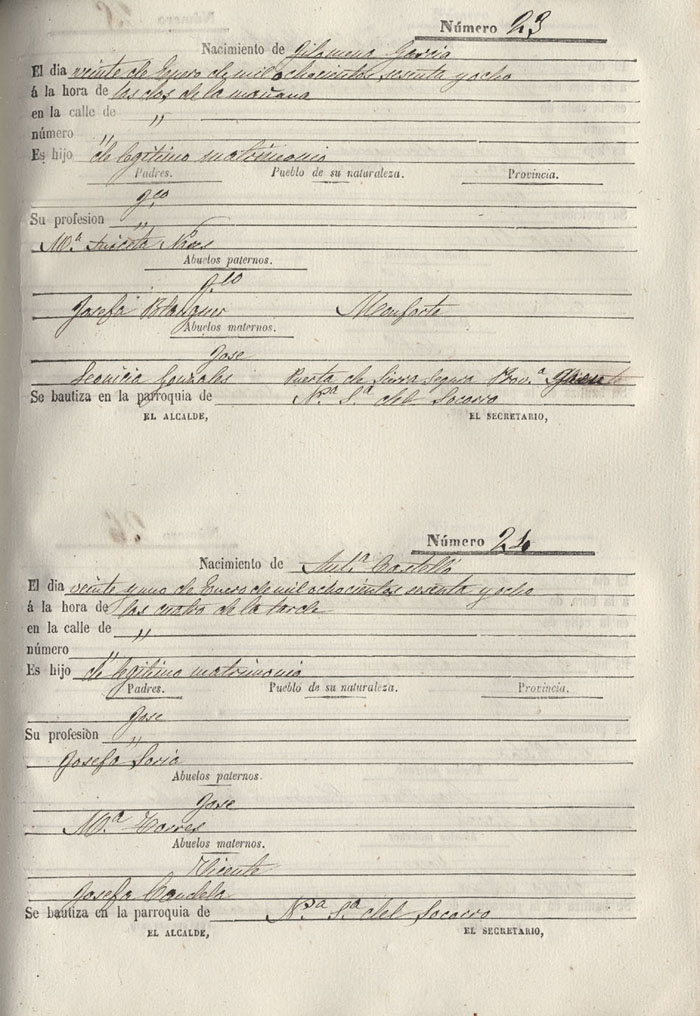 Número 23
Nacimiento de Filomena Garcia
El dia veinte de Enero de mil ochocientos sesenta y ocho
á la hora de las dos de la mañana
en la calle de "
número "
Es hijo de legitimo matrimonio
Padres. Pueblo de su naturaleza. Provincia.
Fco
Su profesion "
Mª
Abuelos paternos.
Fco
Josefa Blasquer Monforte
Abuelos maternos.
Jose
Leonicia Gonzales Puerta de Sierra Segura Provª
Se bautiza en la parroquia de Nra Sª del Socorro
EL ALCALDE, EL SECRETARIO,
Número 24
Nacimiento de Antª Castelló
El dia veinte y uno de Enero de mil ochocientos sesenta y ocho
á la hora de las cuatro de la tarde
en la calle de "
número "
Es hijo de legitimo matrimonio
Padres. Pueblo de su naturaleza. Provincia.
Jose
Su profesion "
Josefa Soria
Abuelos paternos.
Jose
Mª Torres
Abuelos maternos.
Vicente
Josefa Candela
Se bautiza en la parroquia de Nra Sª del Socorro
EL ALCALDE, EL SECRETARIO,